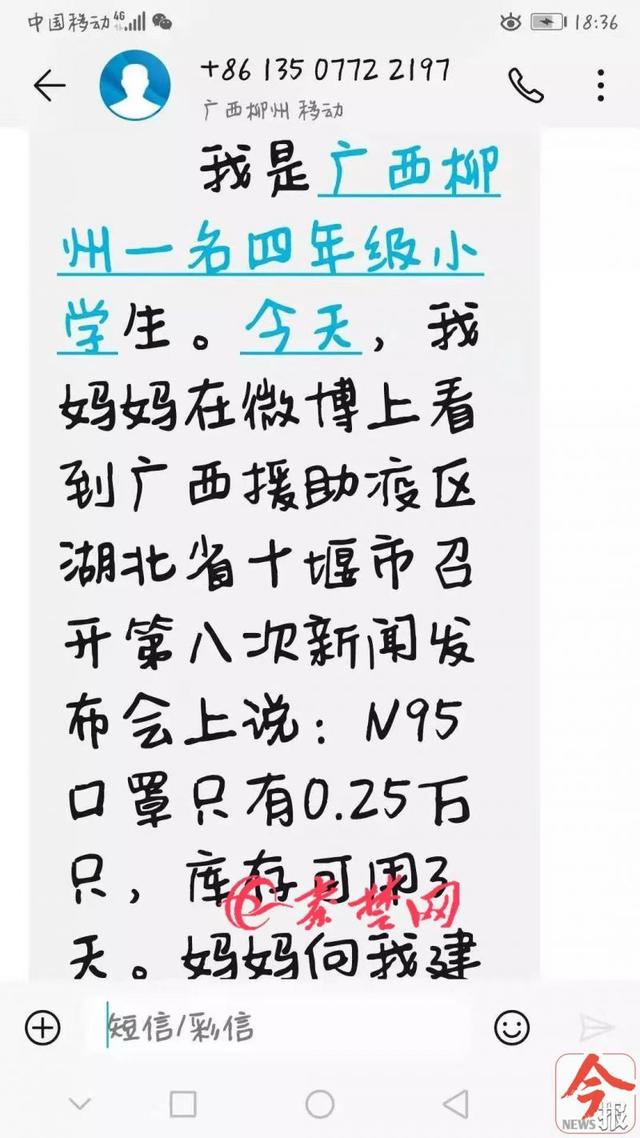 中国移动 4G 18:36
+86 135 0772 2197
广西柳州 移动
我是广西柳
州一名四年级小
学生。今天，我
妈妈在微博上看
到广西援助疫区
湖北省十堰市召
开第八次新闻发
布会上说：N95
口罩只有0.25万
只，库存可用3
天。妈妈向我建
秦楚网
短信/彩信
今
NEWS 报